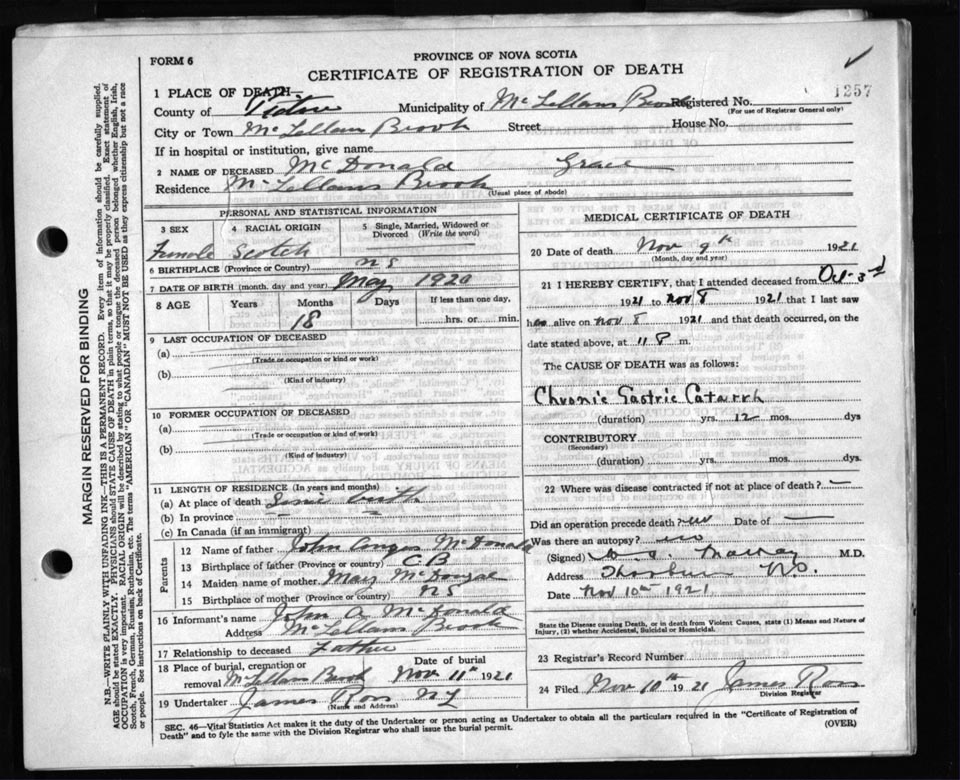 FORM 6
PROVINCE OF NOVA SCOTIA
CERTIFICATE OF REGISTRATION OF DEATH
1257
1 PLACE OF DEATH—
County of Pictou Municipality of McLellans Brook Registered No.
(For use of Registrar General only)
City or Town McLellans Brook Street House No.
If in hospital or institution, give name
2 NAME OF DECEASED McDonald Grace
Residence McLellans Brook
(Usual place of abode)
PERSONAL AND STATISTICAL INFORMATION
3 SEX 4 RACIAL ORIGIN 5 Single, Married, Widowed or Divorced (Write the word)
Female Scotch
6 BIRTHPLACE (Province or Country) NS
7 DATE OF BIRTH (month, day and year) May 1920
8 AGE Years Months Days If less than one day.
18 hrs. or min.
9 LAST OCCUPATION OF DECEASED
(a)
(Trade or occupation or kind of work)
(b)
(Kind of industry)
10 FORMER OCCUPATION OF DECEASED
(a)
(Trade or occupation or kind of work)
(b)
(Kind of industry)
11 LENGTH OF RESIDENCE (In years and months)
(a) At place of death Since birth
(b) In province —
(c) In Canada (if an immigrant)
Parents
12 Name of father John Angus McDonald
13 Birthplace of father (Province or country) C B
14 Maiden name of mother Mary McDougal
15 Birthplace of mother (Province or country) NS
16 Informant's name John A. McDonald
Address McLellans Brook
17 Relationship to deceased Father
18 Place of burial, cremation or removal McLellans Brook Date of burial Nov 11th 1921
19 Undertaker James Ross
(Name and Address)
MEDICAL CERTIFICATE OF DEATH
20 Date of death Nov 9th 1921
(Month, day and year)
21 I HEREBY CERTIFY, that I attended deceased from Oct-3rd
1921 to Nov 8 1921 that I last saw
h alive on Nov 8 1921 and that death occurred, on the
date stated above, at 11 P m.
The CAUSE OF DEATH was as follows:
Chronic Gastric Catarrh
(duration) yrs. 12 mos. dys
CONTRIBUTORY
(Secondary)
(duration) yrs. mos. dys.
22 Where was disease contracted if not at place of death? —
Did an operation precede death? no Date of —
Was there an autopsy? no
(Signed) M.D.
Address Thorburn N.S.
Date Nov 10th 1921
State the Disease causing Death, or in death from Violent Causes, state (1) Means and Nature of Injury, (2) whether Accidental, Suicidal or Homicidal.
23 Registrar's Record Number
24 Filed Nov 10th 1921 James Ross
Division Registrar
SEC. 46—Vital Statistics Act makes it the duty of the Undertaker or person acting as Undertaker to obtain all the particulars required in the "Certificate of Registration of
Death" and to fyle the same with the Division Registrar who shall issue the burial permit. (OVER)
MARGIN RESERVED FOR BINDING
N.B.—WRITE PLAINLY WITH UNFADING INK—THIS IS A PERMANENT RECORD. Every item of information should be carefully supplied.
AGE should be stated EXACTLY. PHYSICIANS should STATE CAUSE OF DEATH in plain terms, so that it may be properly classified. Exact statement of
OCCUPATION is very important. RACIAL ORIGIN will be described by stating to what people or tongue the deceased person belonged whether English, Irish,
Scotch, French, German, Russian, Ruthenian, etc. The terms "AMERICAN" OR "CANADIAN" MUST NOT BE USED as they express citizenship but not a race
or people. See instructions on back of Certificate.